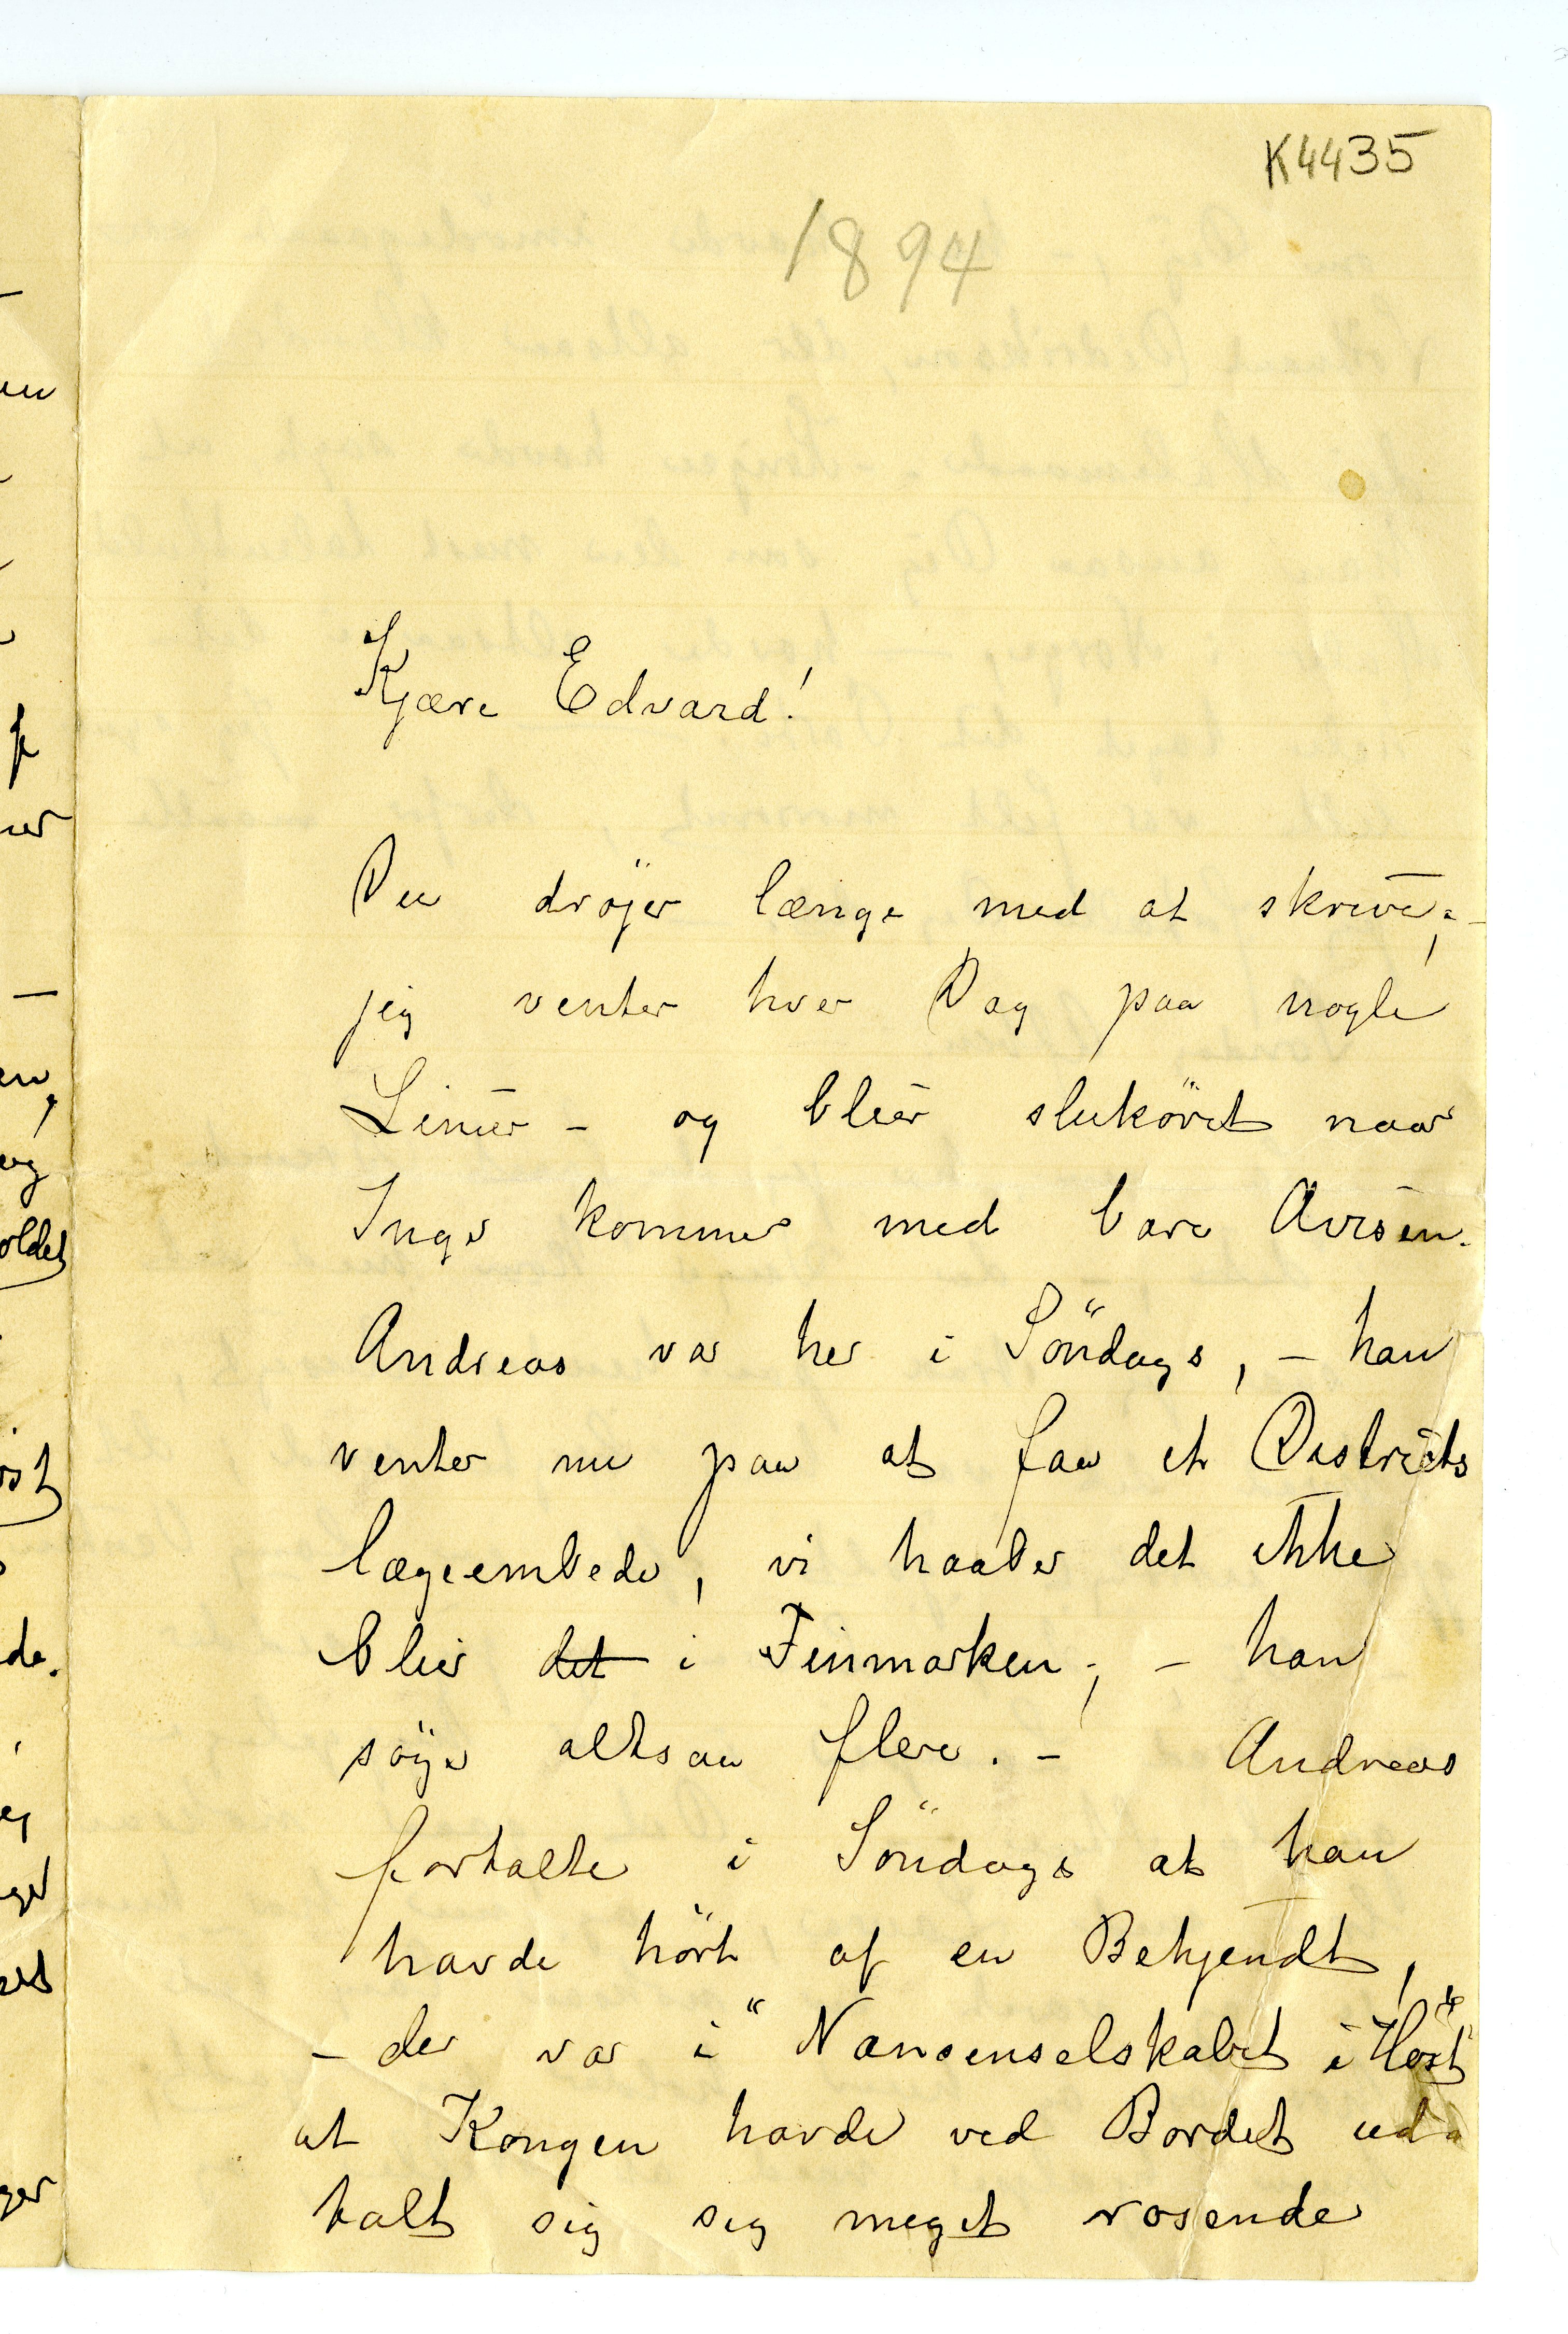 K4435
1894
Kjære Edvard!
Du drøjer længe med at skrive; –
jeg venter hver Dag paa nogle
Linier – og blier slukøret naar
Inger kommer med bare Avisen.
Andreas var her i Søndags, – han
venter nu paa at faa et Districts
lægeembede, vi haaber det ikke
blier det i Finmarken; – han
søger altsaa flere. – Andreas
fortalte i Søndags at han
havde hørt af en Bekjendt,
– der var i "Nansenselskabet i Høst"
at Kongen havde ved Bordet ud
talt sig sig meget rosende